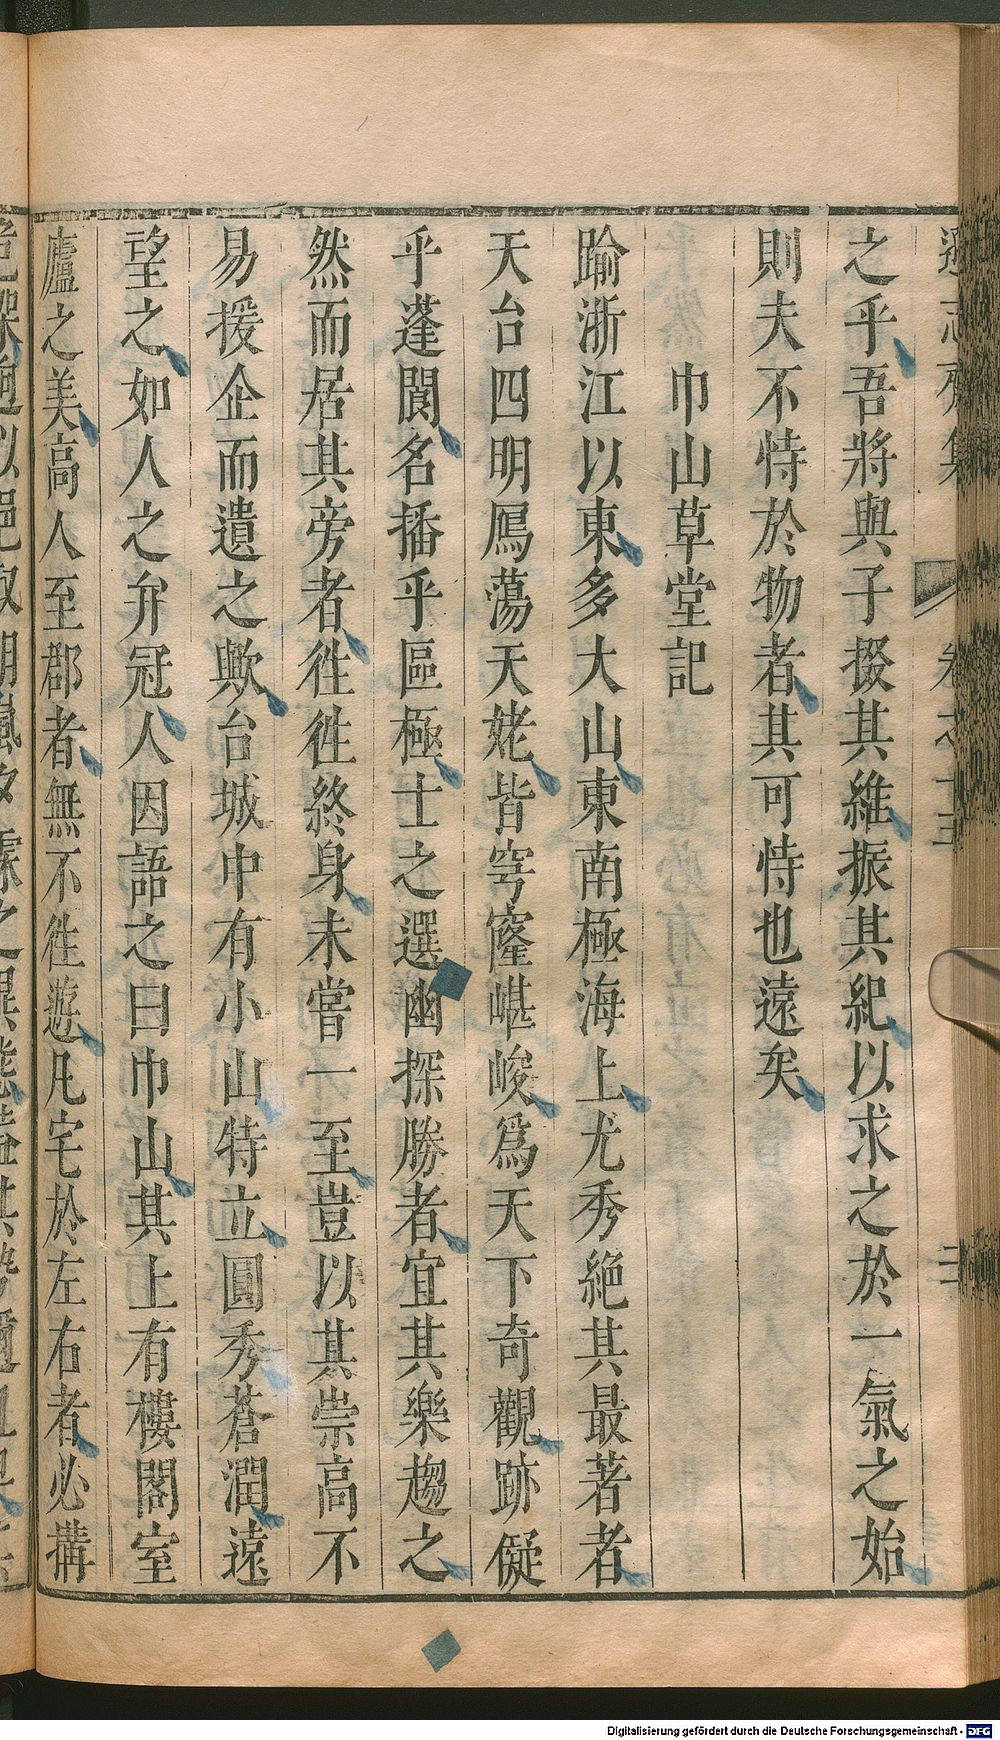 遜志齋集 卷之十五
之乎吾將與子掇其維振其紀以求之於一氣之始
則夫不恃於物者其可恃也遠矣
巾山草堂記
踰浙江以東多大山東南極海上尤秀絕其最著者
天台四明鴈蕩天姥皆穹窿嵁峻爲天下奇觀跡儗
乎蓬閬名播乎區極士之選幽探勝者宜其樂趨之
然而居其旁者徃徃終身未嘗一至豈以其崇高不
易援企而遺之歟台城中有小山特立圓秀蒼潤遠
望之如人之弁冠人因語之曰巾山其上有樓閣室
廬之美高人至郡者無不徃遊凡宅於左右者必搆
Digitalisierung gefördert durch die Deutsche Forschungsgemeinschaft - DFG